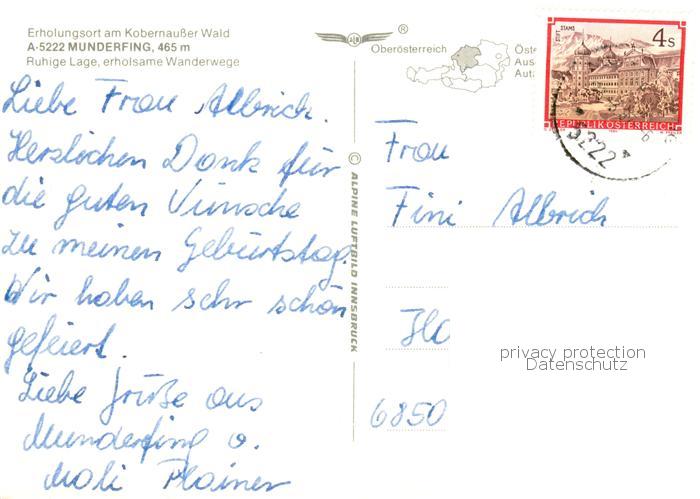 Erholungsort am Kobernaußer Wald
A-5222 MUNDERFING, 465 m
Ruhige Lage, erholsame Wanderwege
Liebe Frau Albrich.
Herzlichen Dank für
die guten Wünsche
zu meinen Geburtstag.
Wir haben sehr schön
gefeiert.
Liebe Grüße aus
Munderfing u.
Mali Plainer
®
Oberösterreich
© ALPINE LUFTBILD INNSBRUCK
STIFT STAMS
4 S
REPUBLIK ÖSTERREICH
5222
Frau
Fini Albrich
6850
privacy protection
Datenschutz